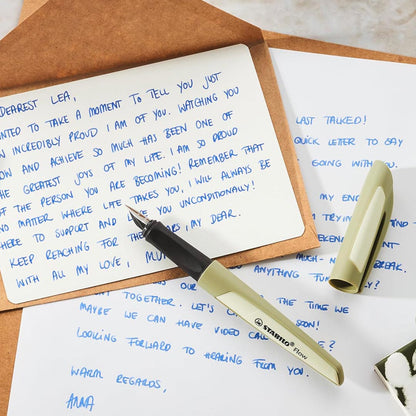 DEAREST LEA,
NTED TO TAKE A MOMENT TO TELL YOU JUST
INCREDIBLY PROUD I AM OF YOU. WATCHING YOU
OW AND ACHIEVE SO MUCH HAS BEEN ONE OF
HE GREATEST JOYS OF MY LIFE. I AM SO PROUD
OF THE PERSON YOU ARE BECOMING! REMEMBER THAT
NO MATTER WHERE LIFE TAKES YOU, I WILL ALWAYS BE
HERE TO SUPPORT AND YOU UNCONDITIONALLY!
KEEP REACHING FOR THE MY DEAR.
WITH ALL MY LOVE,
LAST TALKED!
QUICK LETTER TO SAY
GOING WITH YOU.
MY EN
I TRYIN
MUCH-NE
BREAK.
ANYTHING FUN
TOGETHER. LET'S THE TIME WE
MAYBE WE CAN HAVE VIDEO CALL SOON!
LOOKING FORWARD TO HEARING FROM YOU.
WARM REGARDS,
ANNA
STABILO Flow